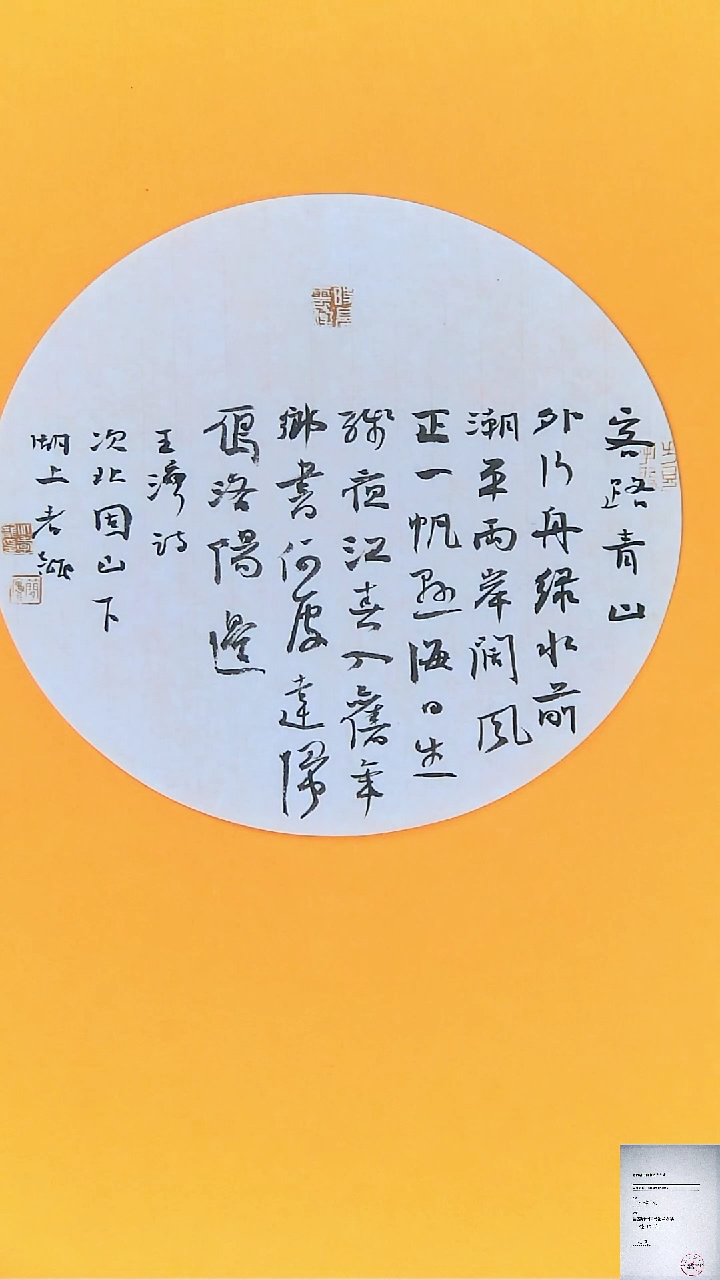 客路青山
外行舟綠水前
潮平兩岸闊風
正一帆懸海日生
殘夜江春入舊年
鄉書何處達歸
雁洛陽邊
王灣詩
次北固山下
湖上老